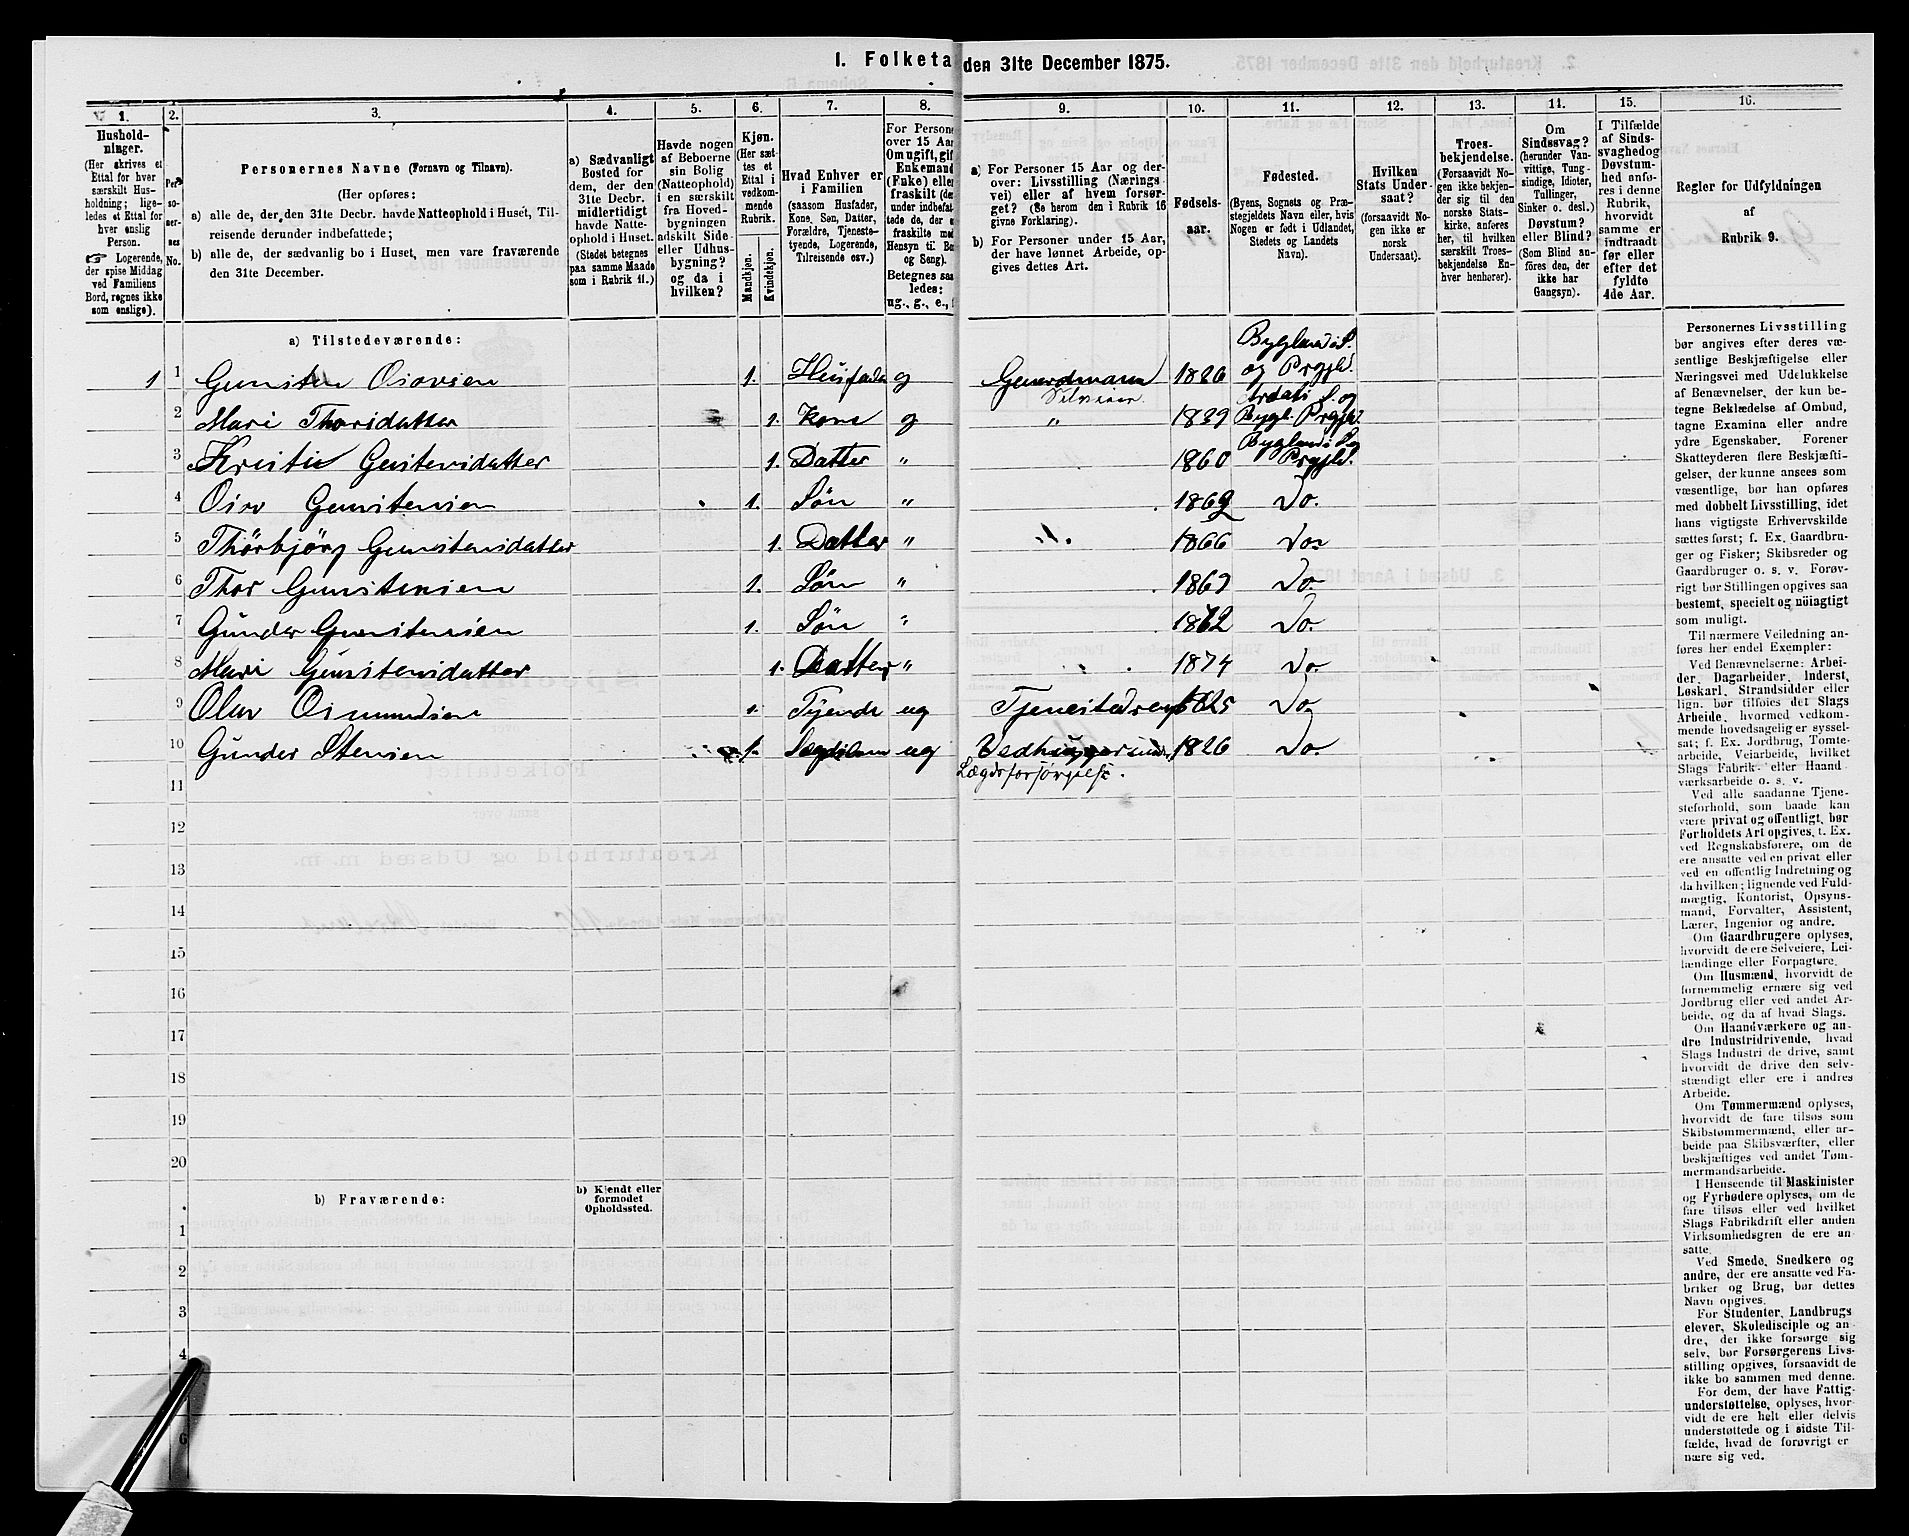 I. Folketa den 31te December 1875.
1. 2. 3. 4. 5. 6. 7. 8. 9. 10. 11. 12. 13. 14. 15. 16.
Hushold-
ninger.
(Her skrives et
Ettal for hver
særskilt Hus-
holdning; lige-
ledes et Ettal for
hver enslig
Person.
☞ Logerende,
der spise Middag
ved Familiens
Bord, regnes ikke
som enslige).
Per-
so-
ner-
nes
No.
Personernes Navne (Fornavn og Tilnavn).
(Her opføres:
a) alle de, der den 31te Decbr. havde Natteophold i Huset, Til-
reisende derunder indbefattede;
b) alle de, der sædvanlig bo i Huset, men vare fraværende
den 31te December.
a) Sædvanligt
Bosted for
dem, der den
31te Decbr.
midlertidigt
havde Natte-
ophold i Huset.
(Stedet betegnes
paa samme Maade
som i Rubrik 11.)
Havde nogen
af Beboerne
sin Bolig
(Natteophold)
i en særskilt
fra Hoved-
bygningen
adskilt Side-
eller Udhus-
bygning?
og da i
hvilken?
Kjøn.
(Her sæt-
tes et
Ettal i
vedkom-
mende
Rubrik.
Mandkjøn.
Kvindekjøn.
Hvad Enhver er
i Familien
(saasom Husfader,
Kone, Søn, Datter,
Forældre, Tjeneste-
tyende, Logerende,
Tilreisende osv.)
For Persone
over 15 Aar
Om ugift, gif
Enkemand
(Enke) elle
fraskilt (de
under indbefat-
tede de, der e
fraskilte med
Hensyn til Bo
og Seng).
Betegnes saa
ledes:
ug., g., e., f
a) For Personer 15 Aar og der-
over: Livsstilling (Nærings
vei) eller af hvem forsør-
get? (Se herom den i Rubrik 16
givne Forklaring).
b) For Personer under 15 Aar,
der have lønnet Arbeide, op-
gives dettes Art.
Fødsels-
aar.
Fødested.
(Byens, Sognets og Præ-
stegjeldets Navn eller, hvis
Nogen er født i Udlandet,
Stedets og Landets
Navn).
Hvilken
Stats Under-
saat?
(forsaavidt No-
gen ikke er
norsk
Undersaat).
Troes-
bekjendelse.
(Forsaavidt No-
gen ikke bekjen-
der sig til den
norske Stats-
kirke, anføres
her, til hvilken
særskilt Troes-
bekjendelse En-
hver henhører).
Om
Sindssvag?
(herunder Van-
vittige, Tung-
sindige, Idioter,
Tullinger,
Sinker o. desl.)
Døvstum?
eller Blind?
(Som Blind an-
føres den, der
ikke har
Gangsyn).
I Tilfælde
af Sinds-
svaghed og
Døvstum-
hed anfø-
res i denne
Rubrik,
hvorvidt
samme er
indtraadt
før eller
efter det
fyldte
4de Aar.
Regler for Udfyldningen
af
Rubrik 9.
a) Tilstedeværende:
Bygland i S.
1 1 Gunsten Osovsen 1. Husfader g Gaardmann 1826 og Prgjld.
Selveier Ardals S. og
2 Mari Thorsdatter 1. Kone g " 1839 Bygl. Prgjld.
Bygland S. og
3 Kristie Gunstensdatter 1. Datter " 1860 Prgjld.
4 Osov Gunstensen 1. Søn " 1862 Do.
5 Thörbjörg Gunstensdatter 1. Datter " 1866 Do.
6 Thor Gunstensen 1. Søn " 1869 Do.
7 Gunder Gunstensen 1. Søn " 1872 Do.
8 Mari Gunstensdatter 1. Datter " 1874 Do.
9 Olav Osmundsen 1. Tyende ug 1825 Do.
10 Gunder Stensen 1. ug 1826 Do.
Lægdsforsørgelse.
11
12
13
14
15
16
17
18
19
20
b) Fraværende: b) Kjendt eller
formodet
Opholdssted.
1
2
3
4
6
Personernes Livsstilling
bør angives efter deres væ-
sentlige Beskjæftigelse eller
Næringsvei med Udelukkelse
af Benævnelser, der kun be-
tegne Beklædelse af Ombud,
tagne Examina eller andre
ydre Egenskaber. Forener
Skatteyderen flere Beskjæfti-
gelser, der kunne ansees som
væsentlige, bør han opføres
med dobbelt Livsstilling, idet
hans vigtigste Erhvervskilde
sættes først; f. Ex. Gaardbru-
ger og Fisker; Skibsreder og
Gaardbruger o. s. v. Forøv-
rigt bør Stillingen opgives saa
bestemt, specielt og nøiagtigt
som muligt.
Til nærmere Veiledning an-
føres her endel Exempler:
Ved Benævnelserne: Arbei-
der, Dagarbeider, Inderst,
Løskarl, Strandsidder eller
lign. bør tilføies det Slags
Arbeide, hvormed vedkom-
mende hovedsagelig er syssel-
sat; f. Ex. Jordbrug, Tomte-
arbeide, Veiarbeide, hvilket
Slags Fabrik- eller Haand
værksarbeide o. s. v.
Ved alle saadanne Tjene-
steforhold, som baade kan
være privat og offentligt, bør
Forholdets Art opgives, t. Ex.
ved Regnskabsførere, om de
ere ansatte ved en privat eller
ved en offentlig Indretning og
da hvilken; lignende ved Fuld-
mægtig, Kontorist, Opsyns-
mand, Forvalter, Assistent,
Lærer, Ingeniør og andre.
Om Gaardbrugere oplyses,
hvorvidt de ere Selveiere, Lei-
lændinge eller Forpagtere.
Om Husmænd, hvorvidt de
fornemmelig ernære sig ved
Jordbrug eller ved andet Ar-
beide, og da af hvad Slags.
Om Haandværkere og an-
dre Industridrivende, hvad
Slags Industri de drive, samt
hvorvidt de drive den selv-
stændigt eller ere i andres
Arbeide.
Om Tømmermænd oplyses,
hvorvidt de fare tilsøs som
Skibstømmermænd, eller ar-
beide paa Skibsværfter, eller
beskjæftiges ved andet Tøm-
mermandsarbeide.
I Henseende til Maskinister
og Fyrbødere oplyses, om de
fare tilsøs eller ved hvilket
Slags Fabrikdrift eller anden
Virksomhedsgren de ere an-
satte.
Ved Smede, Snedkere og
andre, der ere ansatte ved Fa-
briker og Brug, bør dettes
Navn opgives.
For Studenter, Landbrugs
elever, Skoledisciple og an-
dre, der ikke forsørge sig
selv, bør Forsørgerens Livs-
stilling opgives, forsaavidt de
ikke bo sammen med denne.
For dem, der have Fattig-
understøttelse, oplyses, hvor-
vidt de ere helt eller delvis
understøttede og i sidste Til-
fælde, hvad de forøvrigt er
nære sig ved.